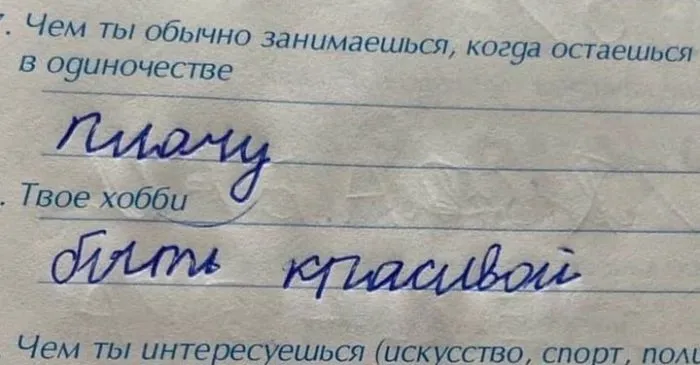 7. Чем ты обычно занимаешься, когда остаешься
в одиночестве
плачу
. Твое хобби
быть красивой
. Чем ты интересуешься (искусство, спорт, поли